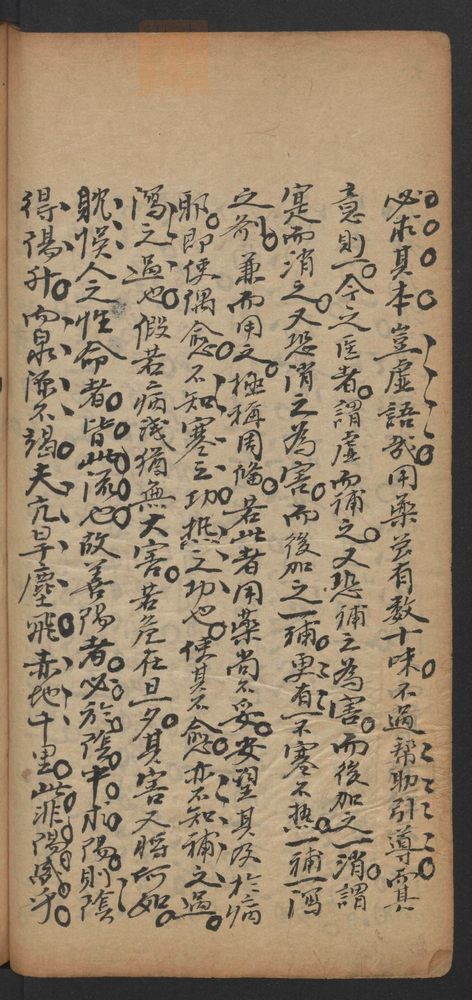 必求其本豈虛語哉用藥若有數十味不過幫助引導而其
意則一今之医者謂虛而補之又恐補之為害而後加之一消謂
寔而消之又恐消之為害而後加之一補更有不寒不熱一補一瀉
之剂兼而用之極稱周俻若此者用藥尚不妥安望其及於病
耶即使偶愈不知寒之功熱之功也使其不愈亦不知補之過
瀉之過也假若病淺猶無大害若危在旦夕其害又將何如
躭悞人之性命者皆此流也故善陽者必於陰中求陽則陰
得陽升而泉源不竭夫亢旱塵飛赤地千里此非陽盛乎